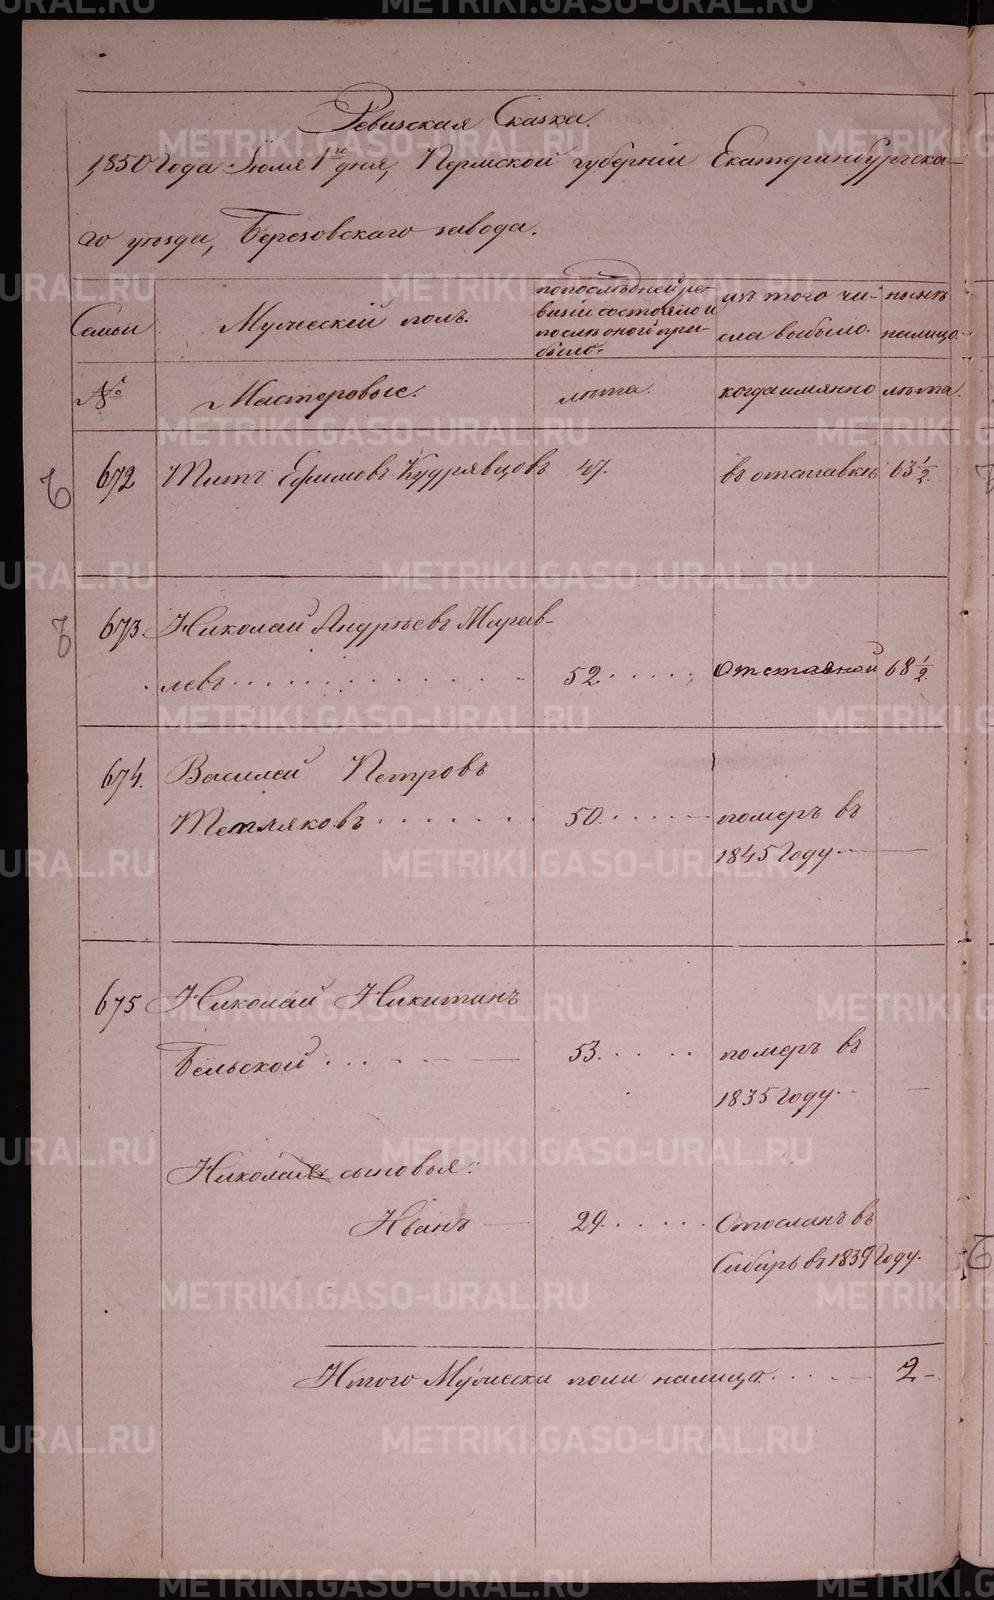 Ревизская Сказка.
1850 года Іюля 1го дня, Пермской губерніи Екатеринбургска-
го уѣзда, Березовскаго завода.
Семьи
Мужескій полъ.
по послѣдней ре-
визіи состояло и
послѣ оной при-
было.
изъ того чи-
сла выбыло.
нынѣ
на лицо.
№
Мастеровые.
лѣта.
когда имянно
лѣта.
672 Титъ Ефимовъ Кудрявцовъ 47. въ отставкѣ 63 1/2.
673. Николай Андреевъ Журав-
левъ 52 Отставной 68 1/2
674. Василей Петровъ
Тепляковъ 50. померъ въ
1845 году
675 Николай Никитинъ
Бѣльской 53. померъ въ
1835 году
Николая сыновья:
Иванъ 29. Отосланъ въ
Сибирь въ 1839 году.
Итого Мужеска пола на лицо 2
METRIKI.GASO-URAL.RU